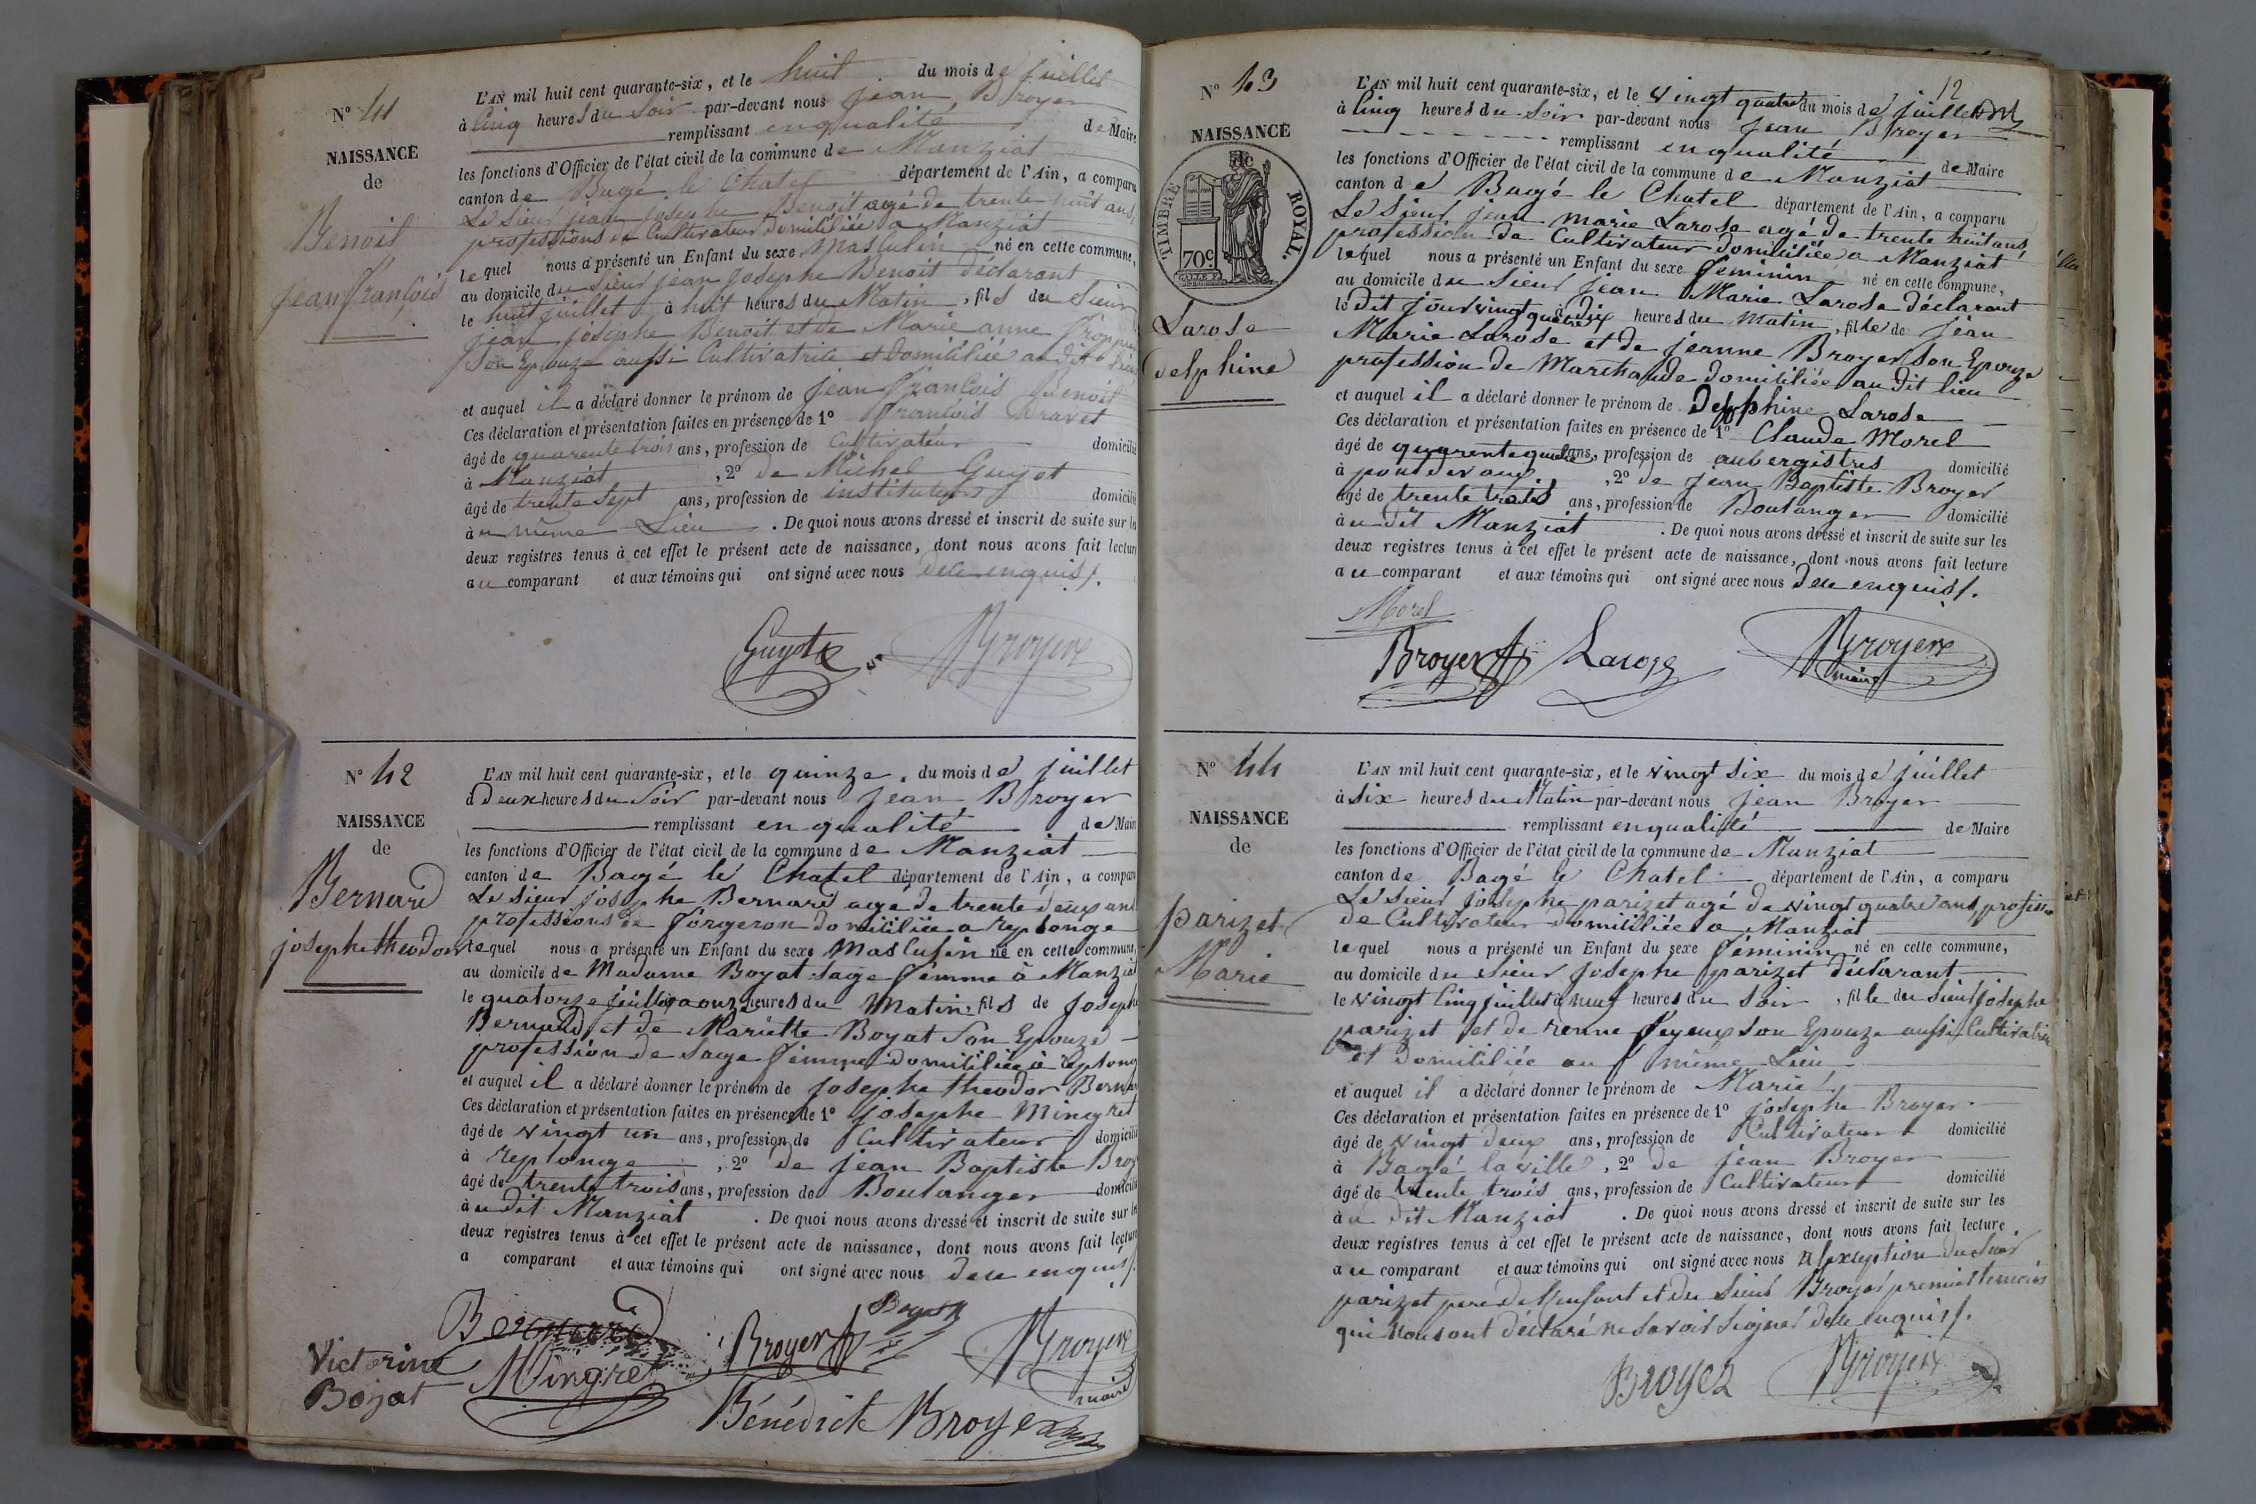 N° 41
NAISSANCE
de
Benoit
jean françois
L'AN mil huit cent quarante-six, et le huit du mois de juillet
à Cinq heures du Soir par-devant nous jean Broyer
remplissant en qualité de Maire
les fonctions d'Officier de l'état civil de la commune de Manziat
canton de Bagé le Chatel département de l'Ain, a comparu
Le Sieur jean josephe Benoit agé de trente huit ans,
professions de Cultivateur domiciliée a Manziat
lequel nous a présenté un Enfant du sexe Masculin né en cette commune,
au domicile du Sieur jean josephe Benoit déclarant
le huit juillet à huit heures du Matin, fils du Sieur
jean josephe Benoit et de Marie anne
Son Epouze aussi Cultivatrice et domiciliée au dit lieu
et auquel il a déclaré donner le prénom de jean françois Benoit
Ces déclaration et présentation faites en présence de 1° françois Dravet
âgé de quarente trois ans, profession de Cultivateur domicilié
à Manziat, 2° de Michel Guyot
âgé de trente sept ans, profession de instituteur domicilié
au même Lieu. De quoi nous avons dressé et inscrit de suite sur les
deux registres tenus à cet effet le présent acte de naissance, dont nous avons fait lecture
au comparant et aux témoins qui ont signé avec nous de ce enquis.
Guyot Broyer
N° 42
NAISSANCE
de
Bernard
josephe theodor
L'AN mil huit cent quarante-six, et le quinze du mois de juillet
à Deux heures du Soir par-devant nous jean Broyer
remplissant en qualité de Maire
les fonctions d'Officier de l'état civil de la commune de Manziat
canton de Bagé le Chatel département de l'Ain, a comparu
Le Sieur josephe Bernard agé de trente deux ans
professions de forgeron domiciliée a replonge
lequel nous a présenté un Enfant du sexe Masculin né en cette commune,
au domicile de Madame Boyat Sage femme à Manziat
le quatorze juillet a onze heures du Matin, fils de Joseph
Bernard et de Mariette Boyat Son Epouze
profession de Sage femme domiciliée à replonge
et auquel il a déclaré donner le prénom de Josephe theodor Bernard
Ces déclaration et présentation faites en présence de 1° josephe Mingret
âgé de vingt un ans, profession de Cultivateur domicilié
à replonge, 2° de jean Baptiste Broyer
âgé de trente trois ans, profession de Boulanger domicilié
au dit Manziat. De quoi nous avons dressé et inscrit de suite sur les
deux registres tenus à cet effet le présent acte de naissance, dont nous avons fait lecture
a comparant et aux témoins qui ont signé avec nous de ce enquis.
Bernard Broyer Boyat Broyer maire
Victorine Boyat Mingret
Bénédict Broyer
12
N° 43
NAISSANCE
de
TIMBRE ROYAL.
70c
Larose
delphine
L'AN mil huit cent quarante-six, et le vingt quatre du mois de juillet
à Cinq heures du Soir par-devant nous jean Broyer
remplissant en qualité de Maire
les fonctions d'Officier de l'état civil de la commune de Manziat
canton de Bagé le Chatel département de l'Ain, a comparu
Le Sieur jean marie Larose agé de trente huit ans,
profession de Cultivateur domiciliée a Manziat
lequel nous a présenté un Enfant du sexe féminin né en cette commune,
au domicile du Sieur jean Marie Larose déclarant
le dit jour vingt quatre à dix heures du matin, fille de jean
Marie Larose et de jeanne Broyer Son Epouze
profession de Marchande domiciliée au dit lieu
et auquel il a déclaré donner le prénom de Delphine Larose
Ces déclaration et présentation faites en présence de 1° Claude Morel
âgé de quarente quatre ans, profession de aubergistes domicilié
à pont de vaux, 2° de jean Baptiste Broyer
âgé de trente trois ans, profession de Boulanger domicilié
au dit Manziat. De quoi nous avons dressé et inscrit de suite sur les
deux registres tenus à cet effet le présent acte de naissance, dont nous avons fait lecture
au comparant et aux témoins qui ont signé avec nous de ce enquis.
Morel
Broyer Larose Broyer maire
N° 44
NAISSANCE
de
parizet
Marie
L'AN mil huit cent quarante-six, et le vingt six du mois de juillet
à six heures du Matin par-devant nous jean Broyer
remplissant en qualité de Maire
les fonctions d'Officier de l'état civil de la commune de Manziat
canton de Bagé le Chatel département de l'Ain, a comparu
Le Sieur josephe parizet agé de vingt quatre ans, profession
de Cultivateur domiciliée a Manziat
lequel nous a présenté un Enfant du sexe féminin né en cette commune,
au domicile du Sieur josephe parizet déclarant
le vingt Cinq juillet à neuf heures du Soir, fille du Sieur josephe
parizet et de renne feyeux son Epouze aussi Cultivatrice
et domiciliée au même Lieu
et auquel il a déclaré donner le prénom de Marie
Ces déclaration et présentation faites en présence de 1° josephe Broyer
âgé de vingt deux ans, profession de Cultivateur domicilié
à Bagé la ville, 2° de jean Broyer
âgé de trente trois ans, profession de Cultivateur domicilié
au dit Manziat. De quoi nous avons dressé et inscrit de suite sur les
deux registres tenus à cet effet le présent acte de naissance, dont nous avons fait lecture
au comparant et aux témoins qui ont signé avec nous a l'exception du Sieur
parizet pere de l'enfant et du Sieur Broyer premier temoins
qui nous ont déclaré ne savoir Signer de ce enquis.
Broyer Broyer